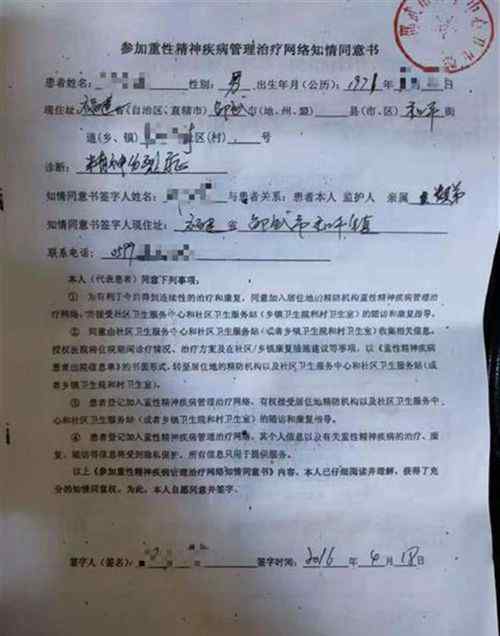 参加重性精神疾病管理治疗网络知情同意书
患者姓名: 性别: 男 出生年月(公历): 1971 年
现住址 福建 省(自治区、直辖市) 邵武 市(地、州、盟) 县(市、区) 和平 街
道(乡、镇) 社区(村) 号
诊断: 精神分裂症
知情同意书签字人姓名: 与患者关系: 患者本人 监护人 亲属
知情同意书签字人现住址: 福建 省 邵武市和平镇
联系电话: 0599
本人(代表患者)同意下列事项:
① 为有利于今后得到连续性的治疗和康复,同意加入居住地的精防机构重性精神疾病管理治
疗网络,并接受社区卫生服务中心和社区卫生服务站(乡镇卫生院和村卫生室)的随访和康复指导。
② 同意由社区卫生服务中心和社区卫生服务站(或者乡镇卫生院和村卫生室)收集相关信息,
授权医院将住院期间诊疗情况、治疗方案及在社区/乡镇康复措施建议等事项,以《重性精神疾病
患者出院信息单》的书面形式,转至居住地的精防机构以及社区卫生服务中心和社区卫生服务站(或
者乡镇卫生院和村卫生室)。
③ 患者登记加入重性精神疾病管理治疗网络,有权接受居住地精防机构以及社区卫生服务中
心和社区卫生服务站(或者乡镇卫生院和村卫生室)的随访和康复指导。
④ 患者登记加入重性精神疾病管理治疗网络,其个人信息以及有关重性精神疾病的治疗、康
复、随访等信息将受到隐私保护。所有信息只用于提供服务。
以上《参加重性精神疾病管理治疗网络知情同意书》内容,本人已仔细阅读并理解,获得了充
分的知情同意权。为此,本人自愿同意并签字。
签字人(签名): 年 签字时间: 2016 年 4 月 18 日